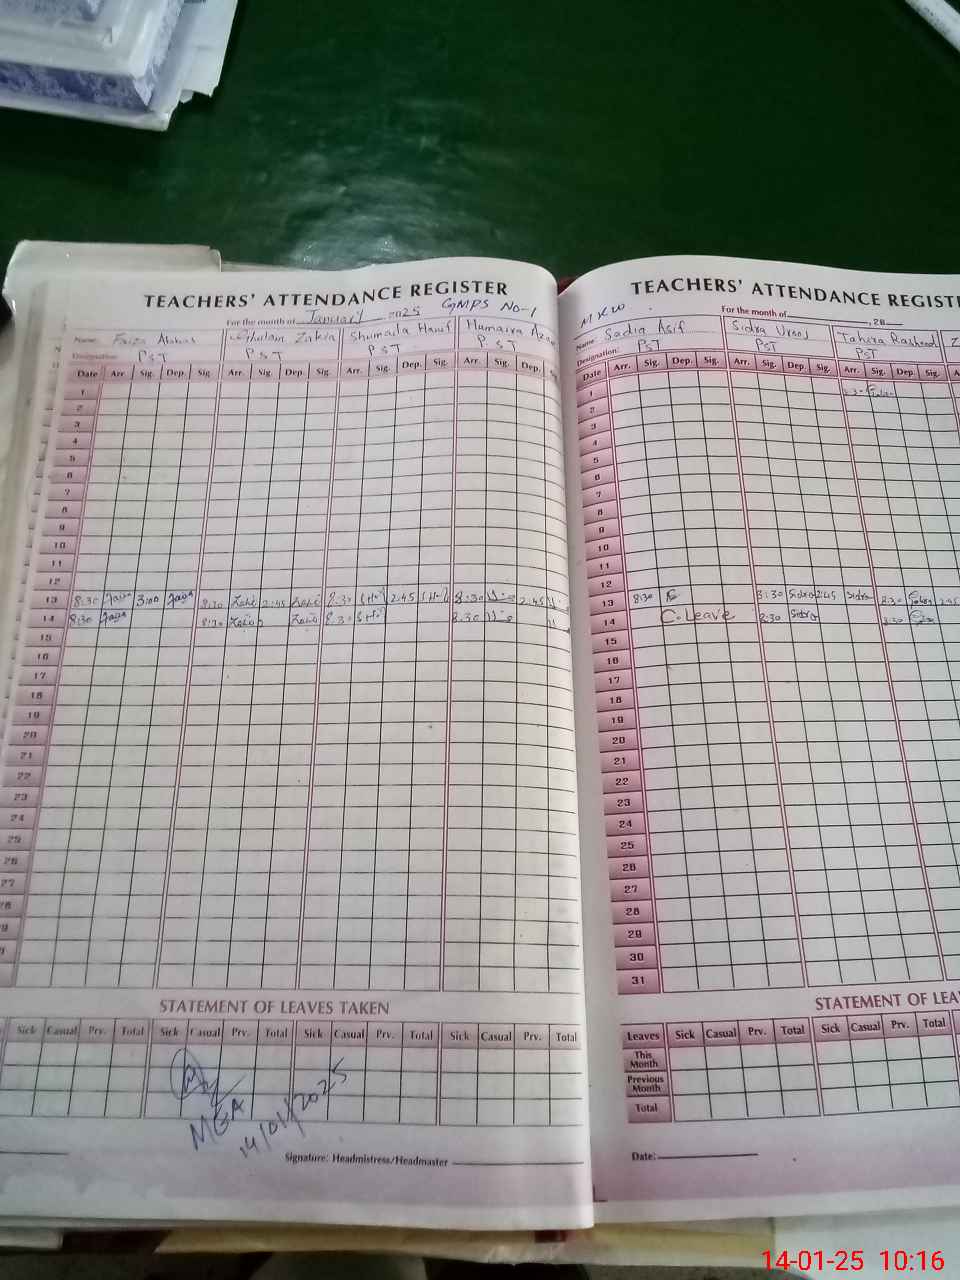 TEACHERS' ATTENDANCE REGISTER
For the month of January 2025 GMPS No-1
Name: Faiza Abbas Ghulain Zakra Shumaila Hanif Humaira
Designation: PST PST PST PST
Date Arr. Sig. Dep. Sig. Arr. Sig. Dep. Sig. Arr. Sig. Dep. Sig. Arr. Sig. Dep.
1
2
3
4
5
6
7
8
9
10
11
12
13 8:30 Faiza 3:00 Faiza 8:30 2:45 8:30 2:45 8:30 2:45
14 8:30 Faiza 8:30 8:30 8:30
15
16
17
18
19
20
21
22
23
24
25
26
27
28
STATEMENT OF LEAVES TAKEN
Sick Casual Prv. Total Sick Casual Prv. Total Sick Casual Prv. Total Sick Casual Prv. Total
MGA
14/01/2025
Signature: Headmistress/Headmaster
TEACHERS' ATTENDANCE REGIST
MKW For the month of 20
Name: Sadia Asif Sidra Urooj Tahira Rasheed Z
Designation: PST PST PST
Date Arr. Sig. Dep. Sig. Arr. Sig. Dep. Sig. Arr. Sig. Dep. Sig.
1
2
3
4
5
6
7
8
9
10
11
12
13 8:30 8:30 Sidra 2:45 Sidra 8:30 2:45
14 C.Leave 8:30 Sidra 8:30
15
16
17
18
19
20
21
22
23
24
25
26
27
28
29
30
31
STATEMENT OF LEA
Leaves Sick Casual Prv. Total Sick Casual Prv. Total
This Month
Previous Month
Total
Date:
14-01-25 10:16